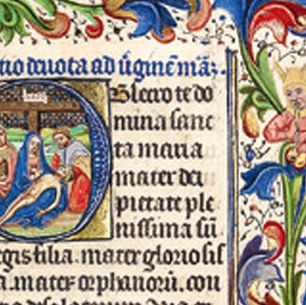 tio deuota ad ũginẽ mãz.
Obsecro te do
mina sanc
ta maria
mater dei
pietate ple
nissima sũ
egis filia. mater glorio sis
a. mater orphanorũ. con